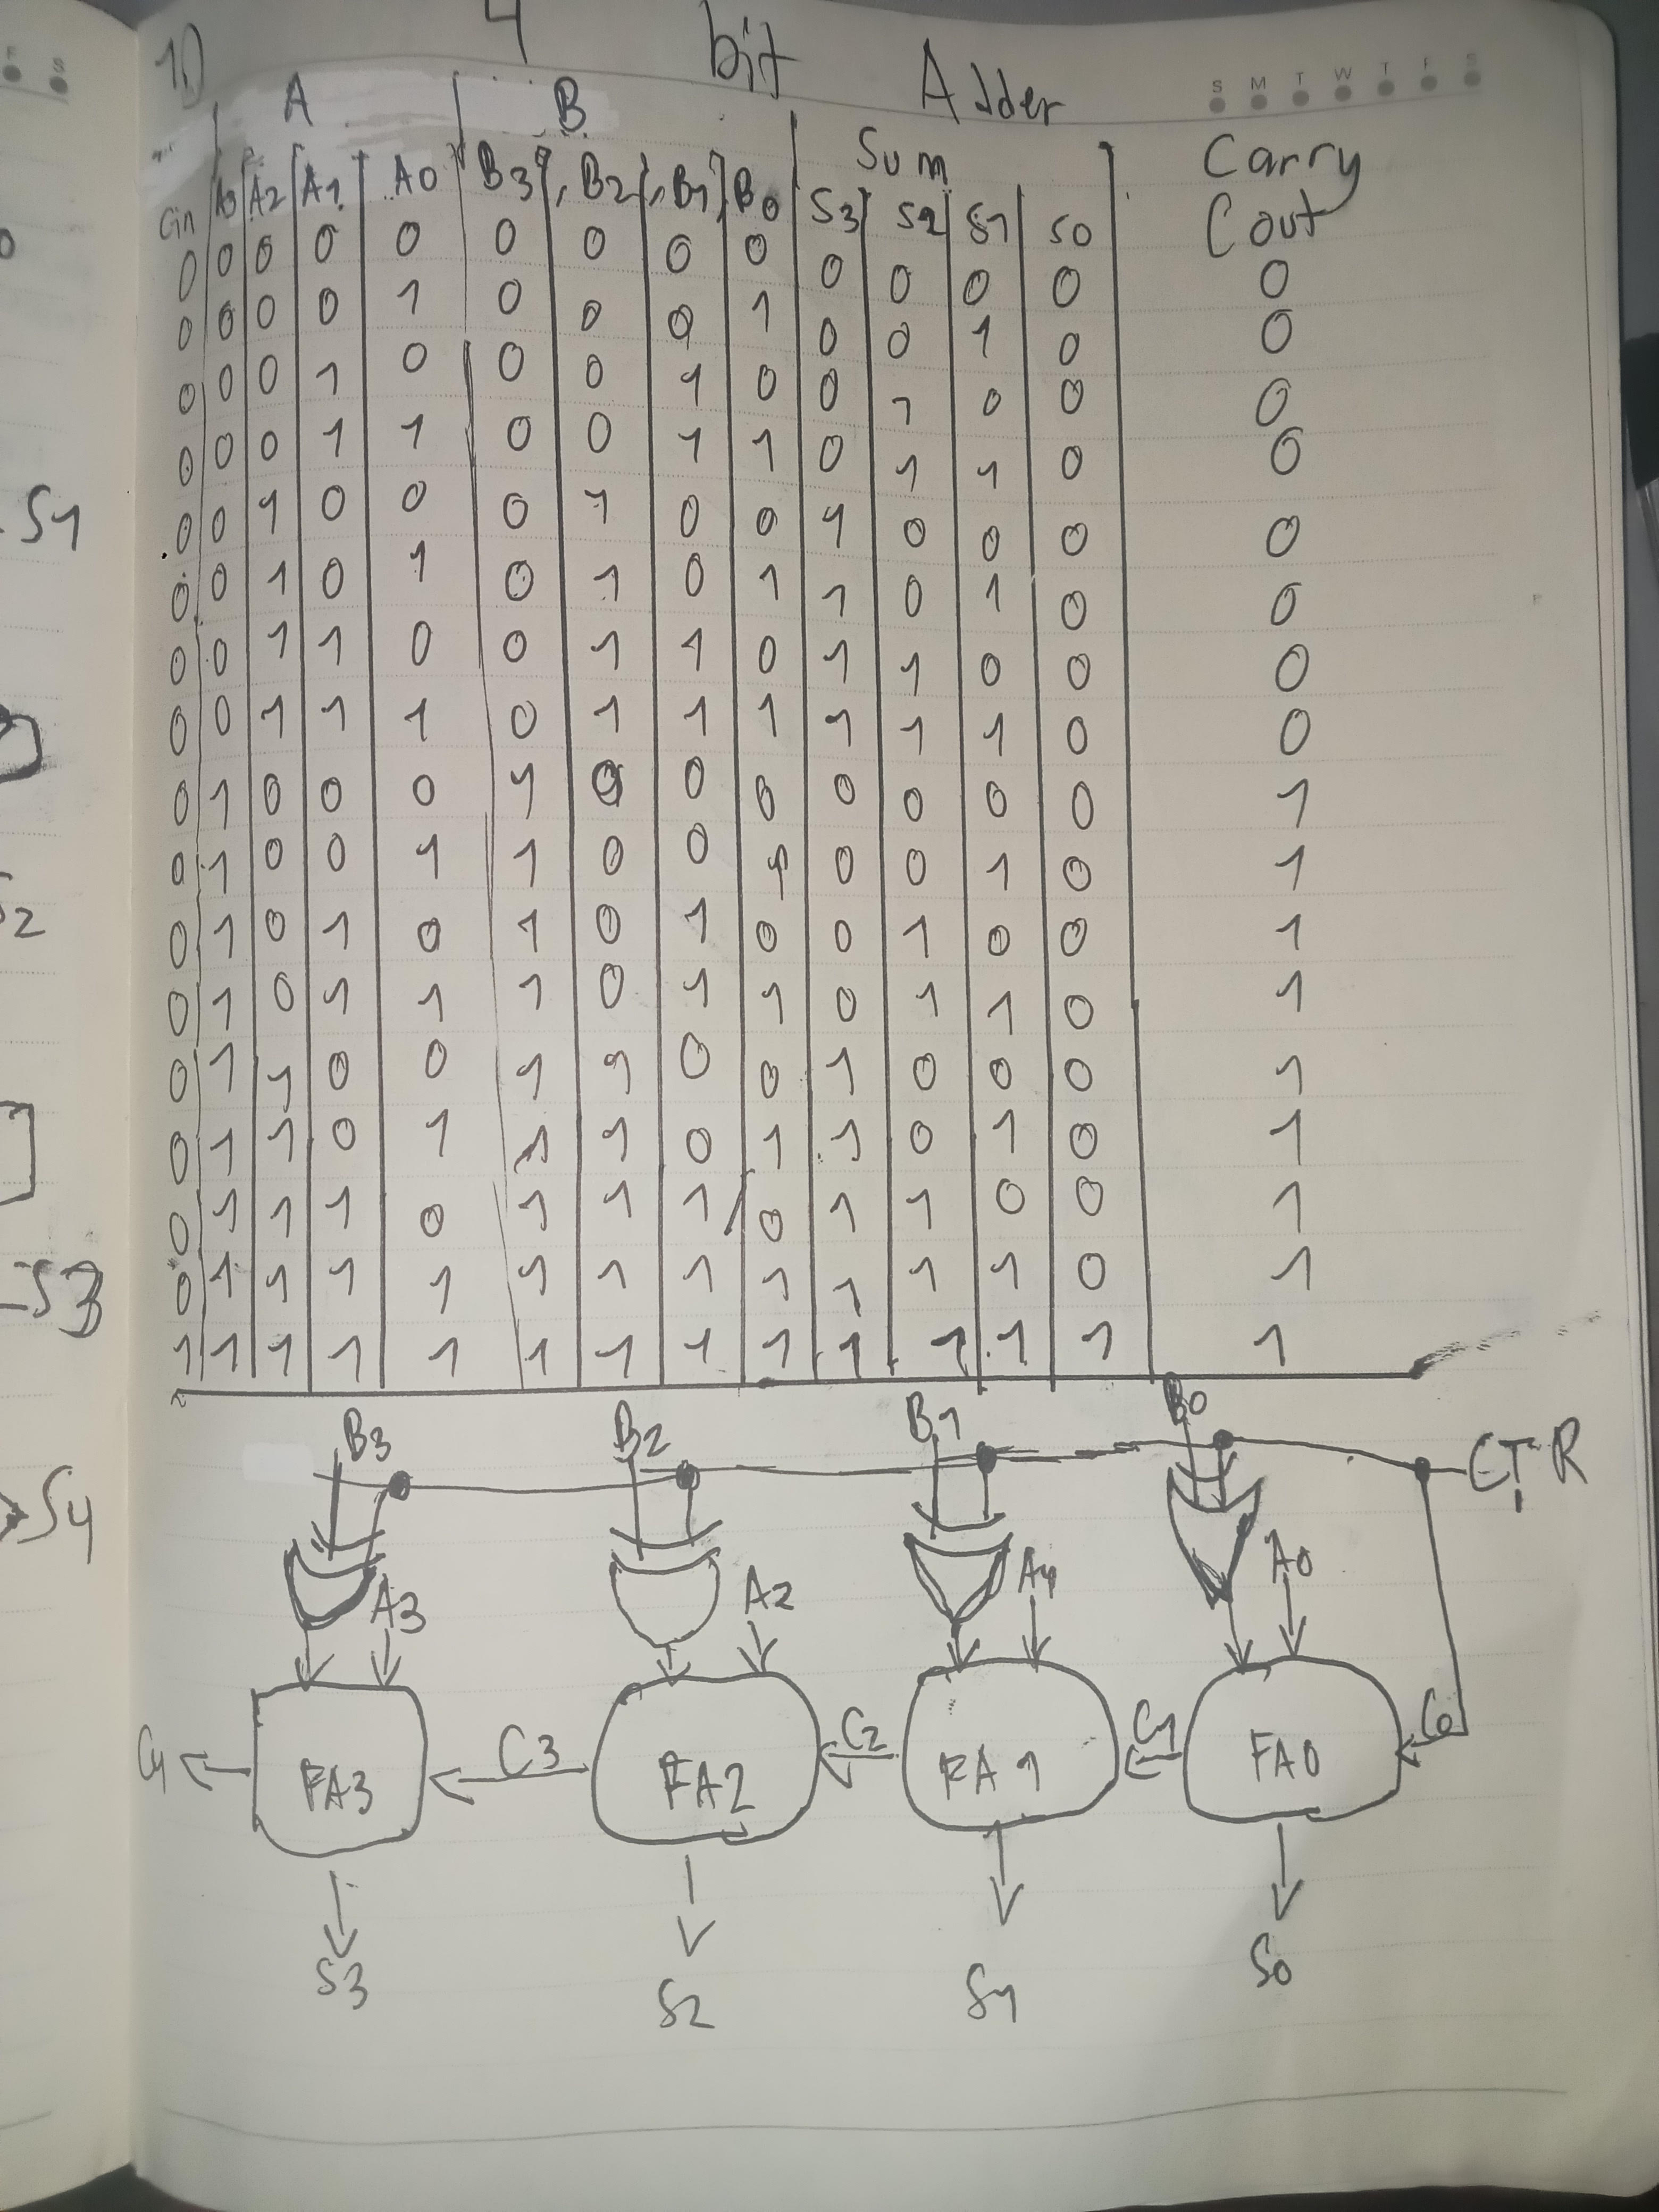 F S
1) 4 bit Adder
S M T W T F S
A B Sum Carry
Cin A3 A2 A1 A0 B3 B2 B1 B0 S3 S2 S1 S0 Cout
0 0 0 0 0 0 0 0 0 0 0 0 0 0
0 0 0 0 1 0 0 0 1 0 0 1 0 0
0 0 0 1 0 0 0 1 0 0 1 0 0 0
0 0 0 1 1 0 0 1 1 0 1 1 0 0
0 0 1 0 0 0 1 0 0 1 0 0 0 0
0 0 1 0 1 0 1 0 1 1 0 1 0 0
0 0 1 1 0 0 1 1 0 1 1 0 0 0
0 0 1 1 1 0 1 1 1 1 1 1 0 0
0 1 0 0 0 1 0 0 0 0 0 0 0 1
0 1 0 0 1 1 0 0 1 0 0 1 0 1
0 1 0 1 0 1 0 1 0 0 1 0 0 1
0 1 0 1 1 1 0 1 1 0 1 1 0 1
0 1 1 0 0 1 1 0 0 1 0 0 0 1
0 1 1 0 1 1 1 0 1 1 0 1 0 1
0 1 1 1 0 1 1 1 0 1 1 0 0 1
0 1 1 1 1 1 1 1 1 1 1 1 0 1
1 1 1 1 1 1 1 1 1 1 1 1 1 1
B3 B2 B1 B0 CTR
A3 A2 A1 A0
C4 FA3 C3 FA2 C2 FA1 C1 FA0 C0
S3 S2 S1 S0
S1
S2
S3
S4